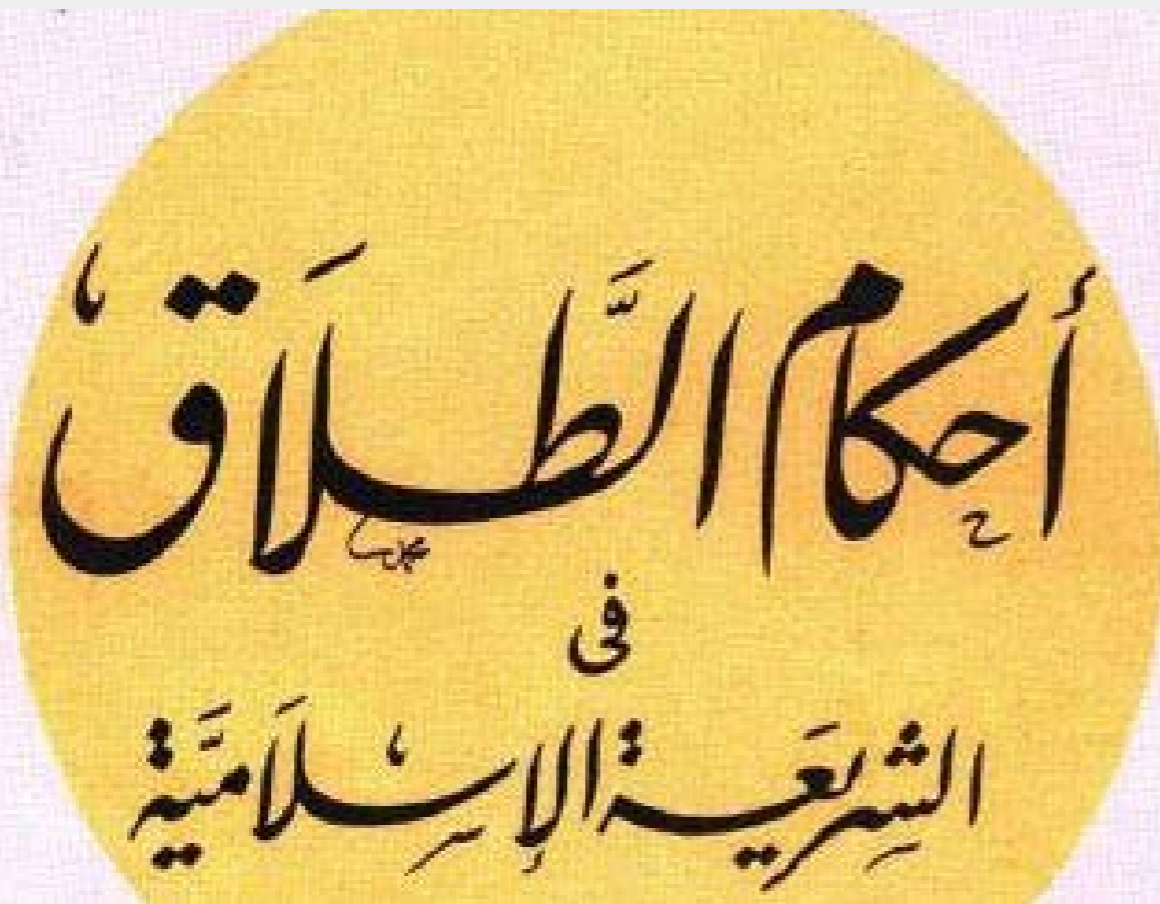 أحكام الطَّلَاق
في
الشِريعَة الإِسْلَاميَّة